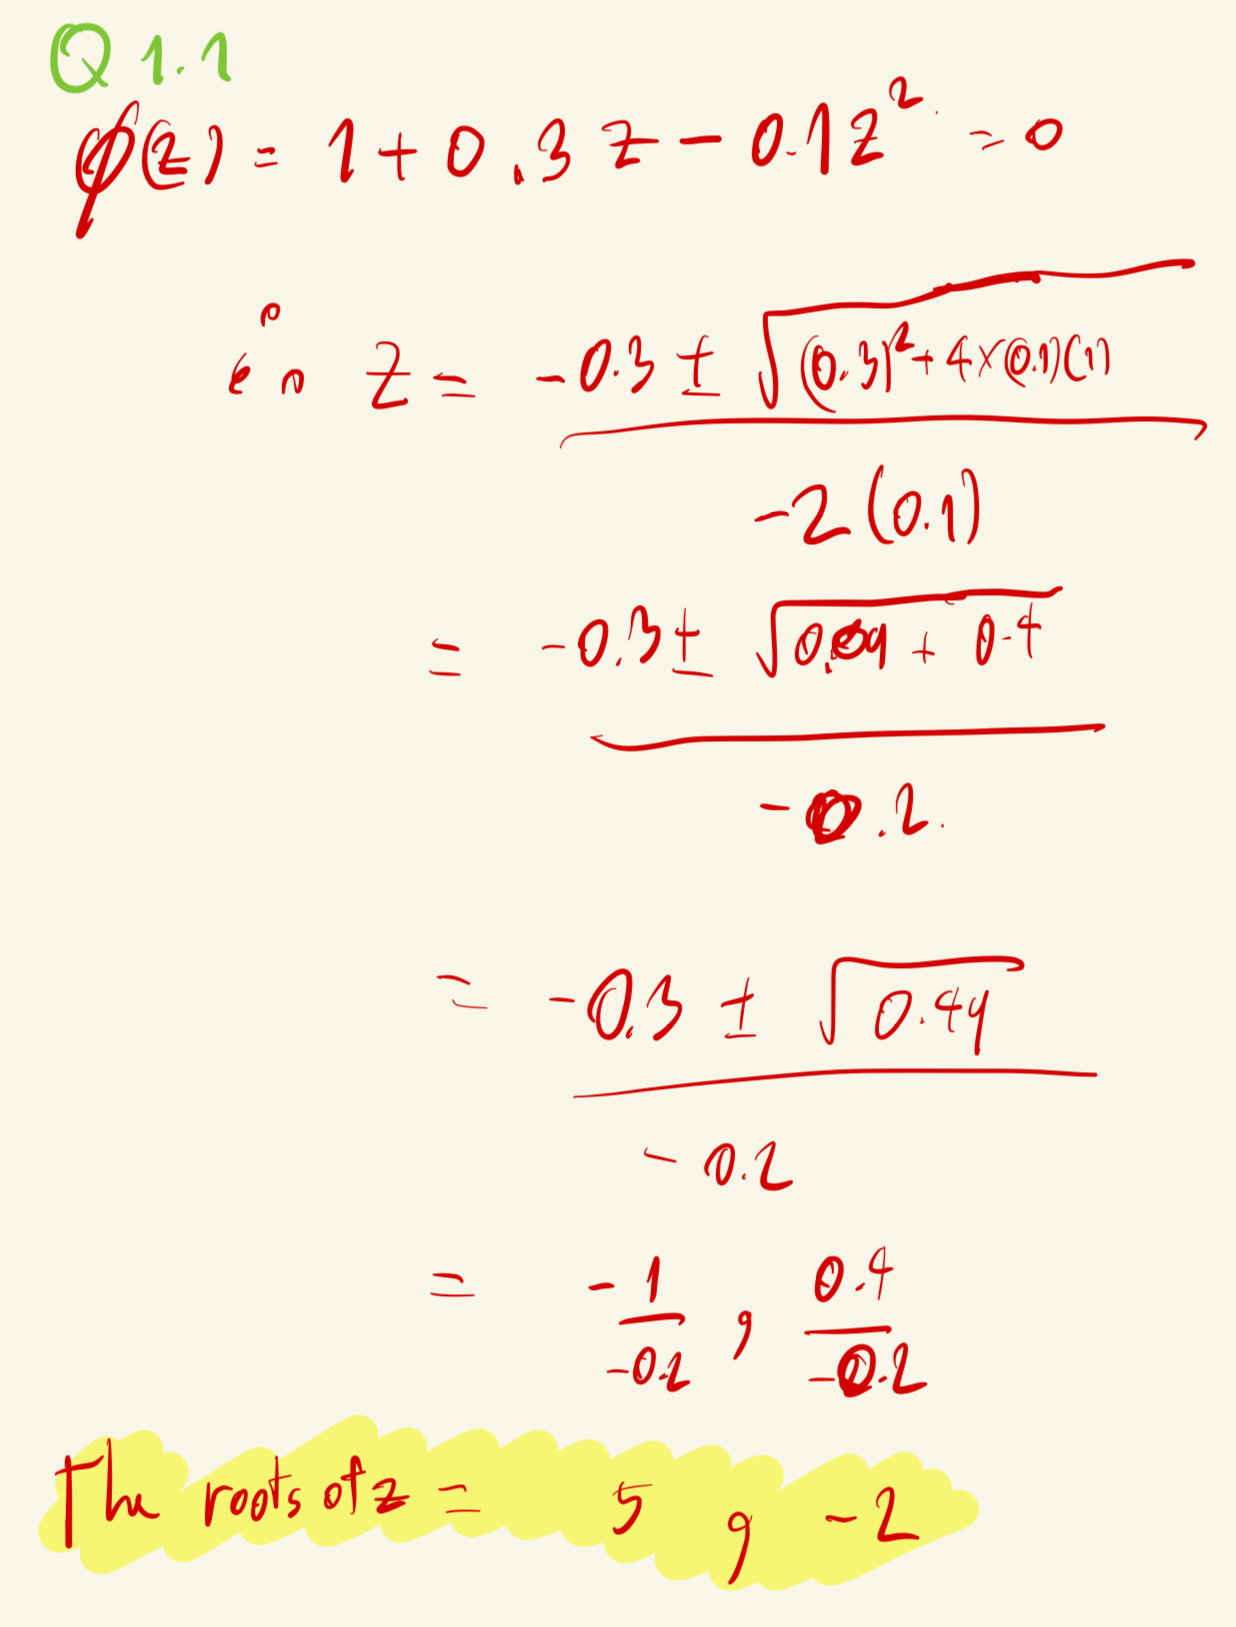 Q 1.1
φ(z) = 1 + 0.3 z - 0.1 z² = 0
∴ z = (-0.3 ± √((0.3)² + 4×(0.1)(1))) / (-2(0.1))
= (-0.3 ± √(0.09 + 0.4)) / (-0.2)
= (-0.3 ± √0.49) / (-0.2)
= -1/-0.2 , 0.4/-0.2
The roots of z = 5 , -2